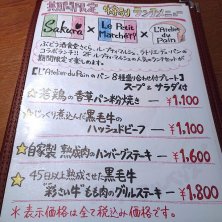 期間限定 特別ランチメニュー
Sakura × Le Petit Marché × L'Atelier du Pain
ぶどう酒食堂さくら、ル・プティ・マルシェ、ラトリエ・デュ・パンの
期間限定で楽しめます。
【L'Atelier du Painのパン 8種盛り合わせプレート】
スープ & サラダ付
☆若鶏の香草パン粉焼き ー ¥1,100
☆じっくり煮込んだ黒毛牛の
ハッシュドビーフ ー ¥1,100
☆自家製熟成肉のハンバーグステーキ ー ¥1,600
☆45日以上熟成させた黒毛牛
"彩さい牛"もも肉のグリルステーキ ー ¥1,800
*表示価格は全て税込み価格です。